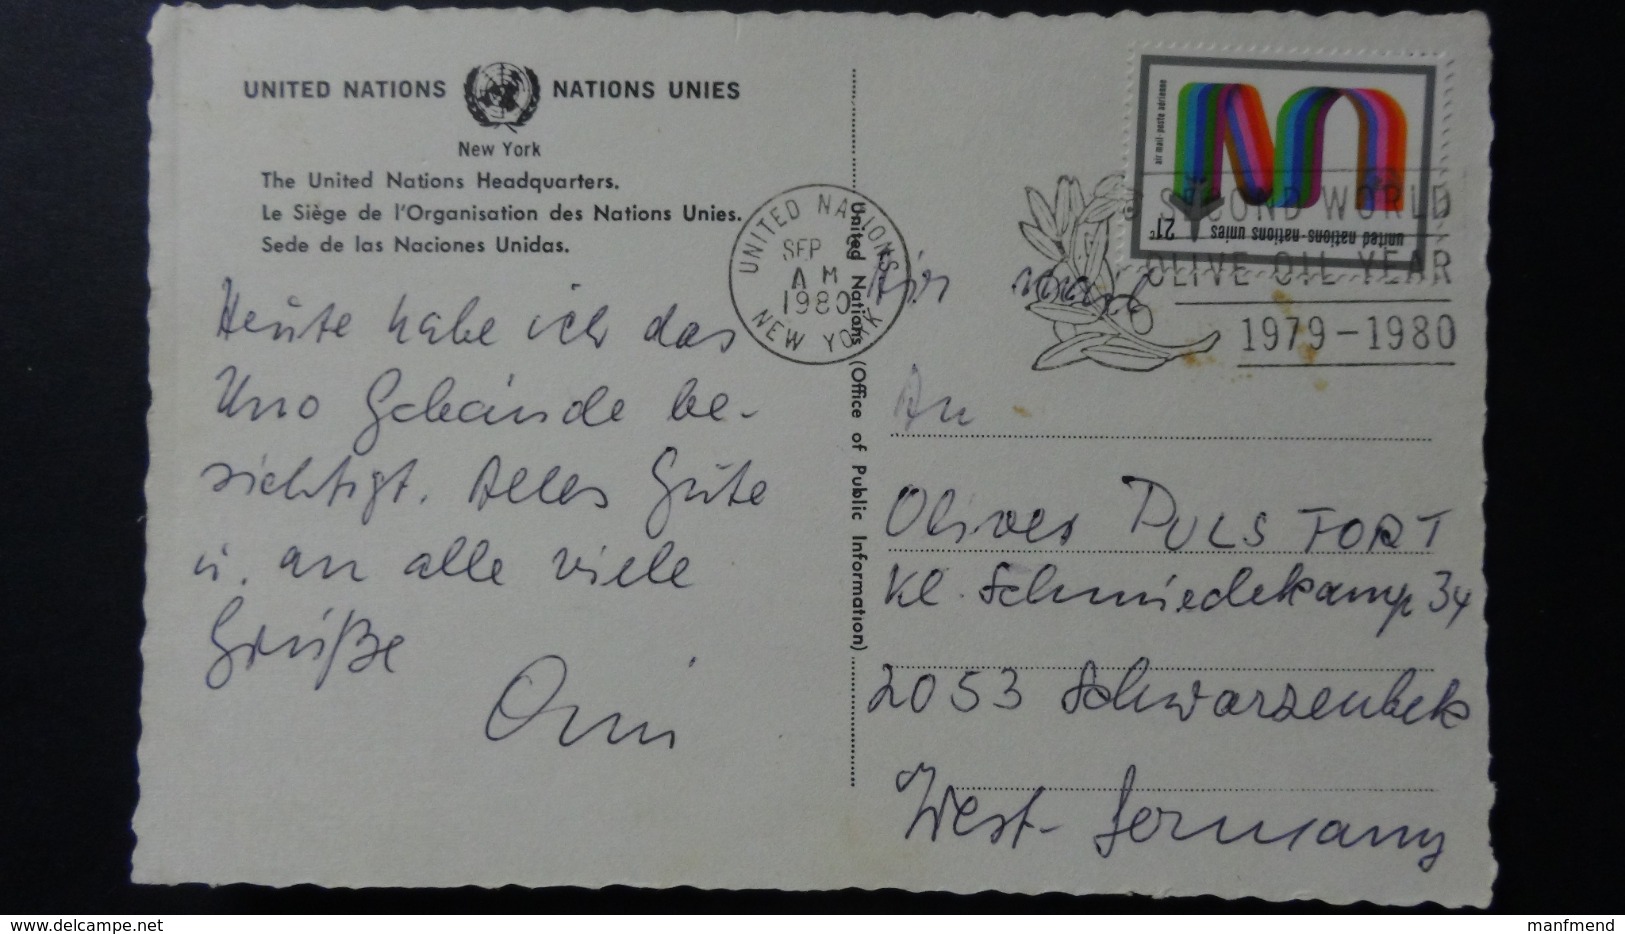 UNITED NATIONS NATIONS UNIES
New York
The United Nations Headquarters.
Le Siège de l'Organisation des Nations Unies.
Sede de las Naciones Unidas.
Heute habe ich das
Uno Gebäude be-
sichtigt. Alles Gute
u. an alle viele
Grüße
Omi
UNITED NATIONS
SEP
AM
1980
NEW YORK
United Nations (Office of Public Information)
air mail-poste aérienne
21c
united nations-nations unies
SECOND WORLD
OLIVE OIL YEAR
1979-1980
Air mail
An
Oliver PULSFORT
Kl. Schmiedekamp 34
2053 Schwarzenbek
West-Germany
delcampe.net
manfmend